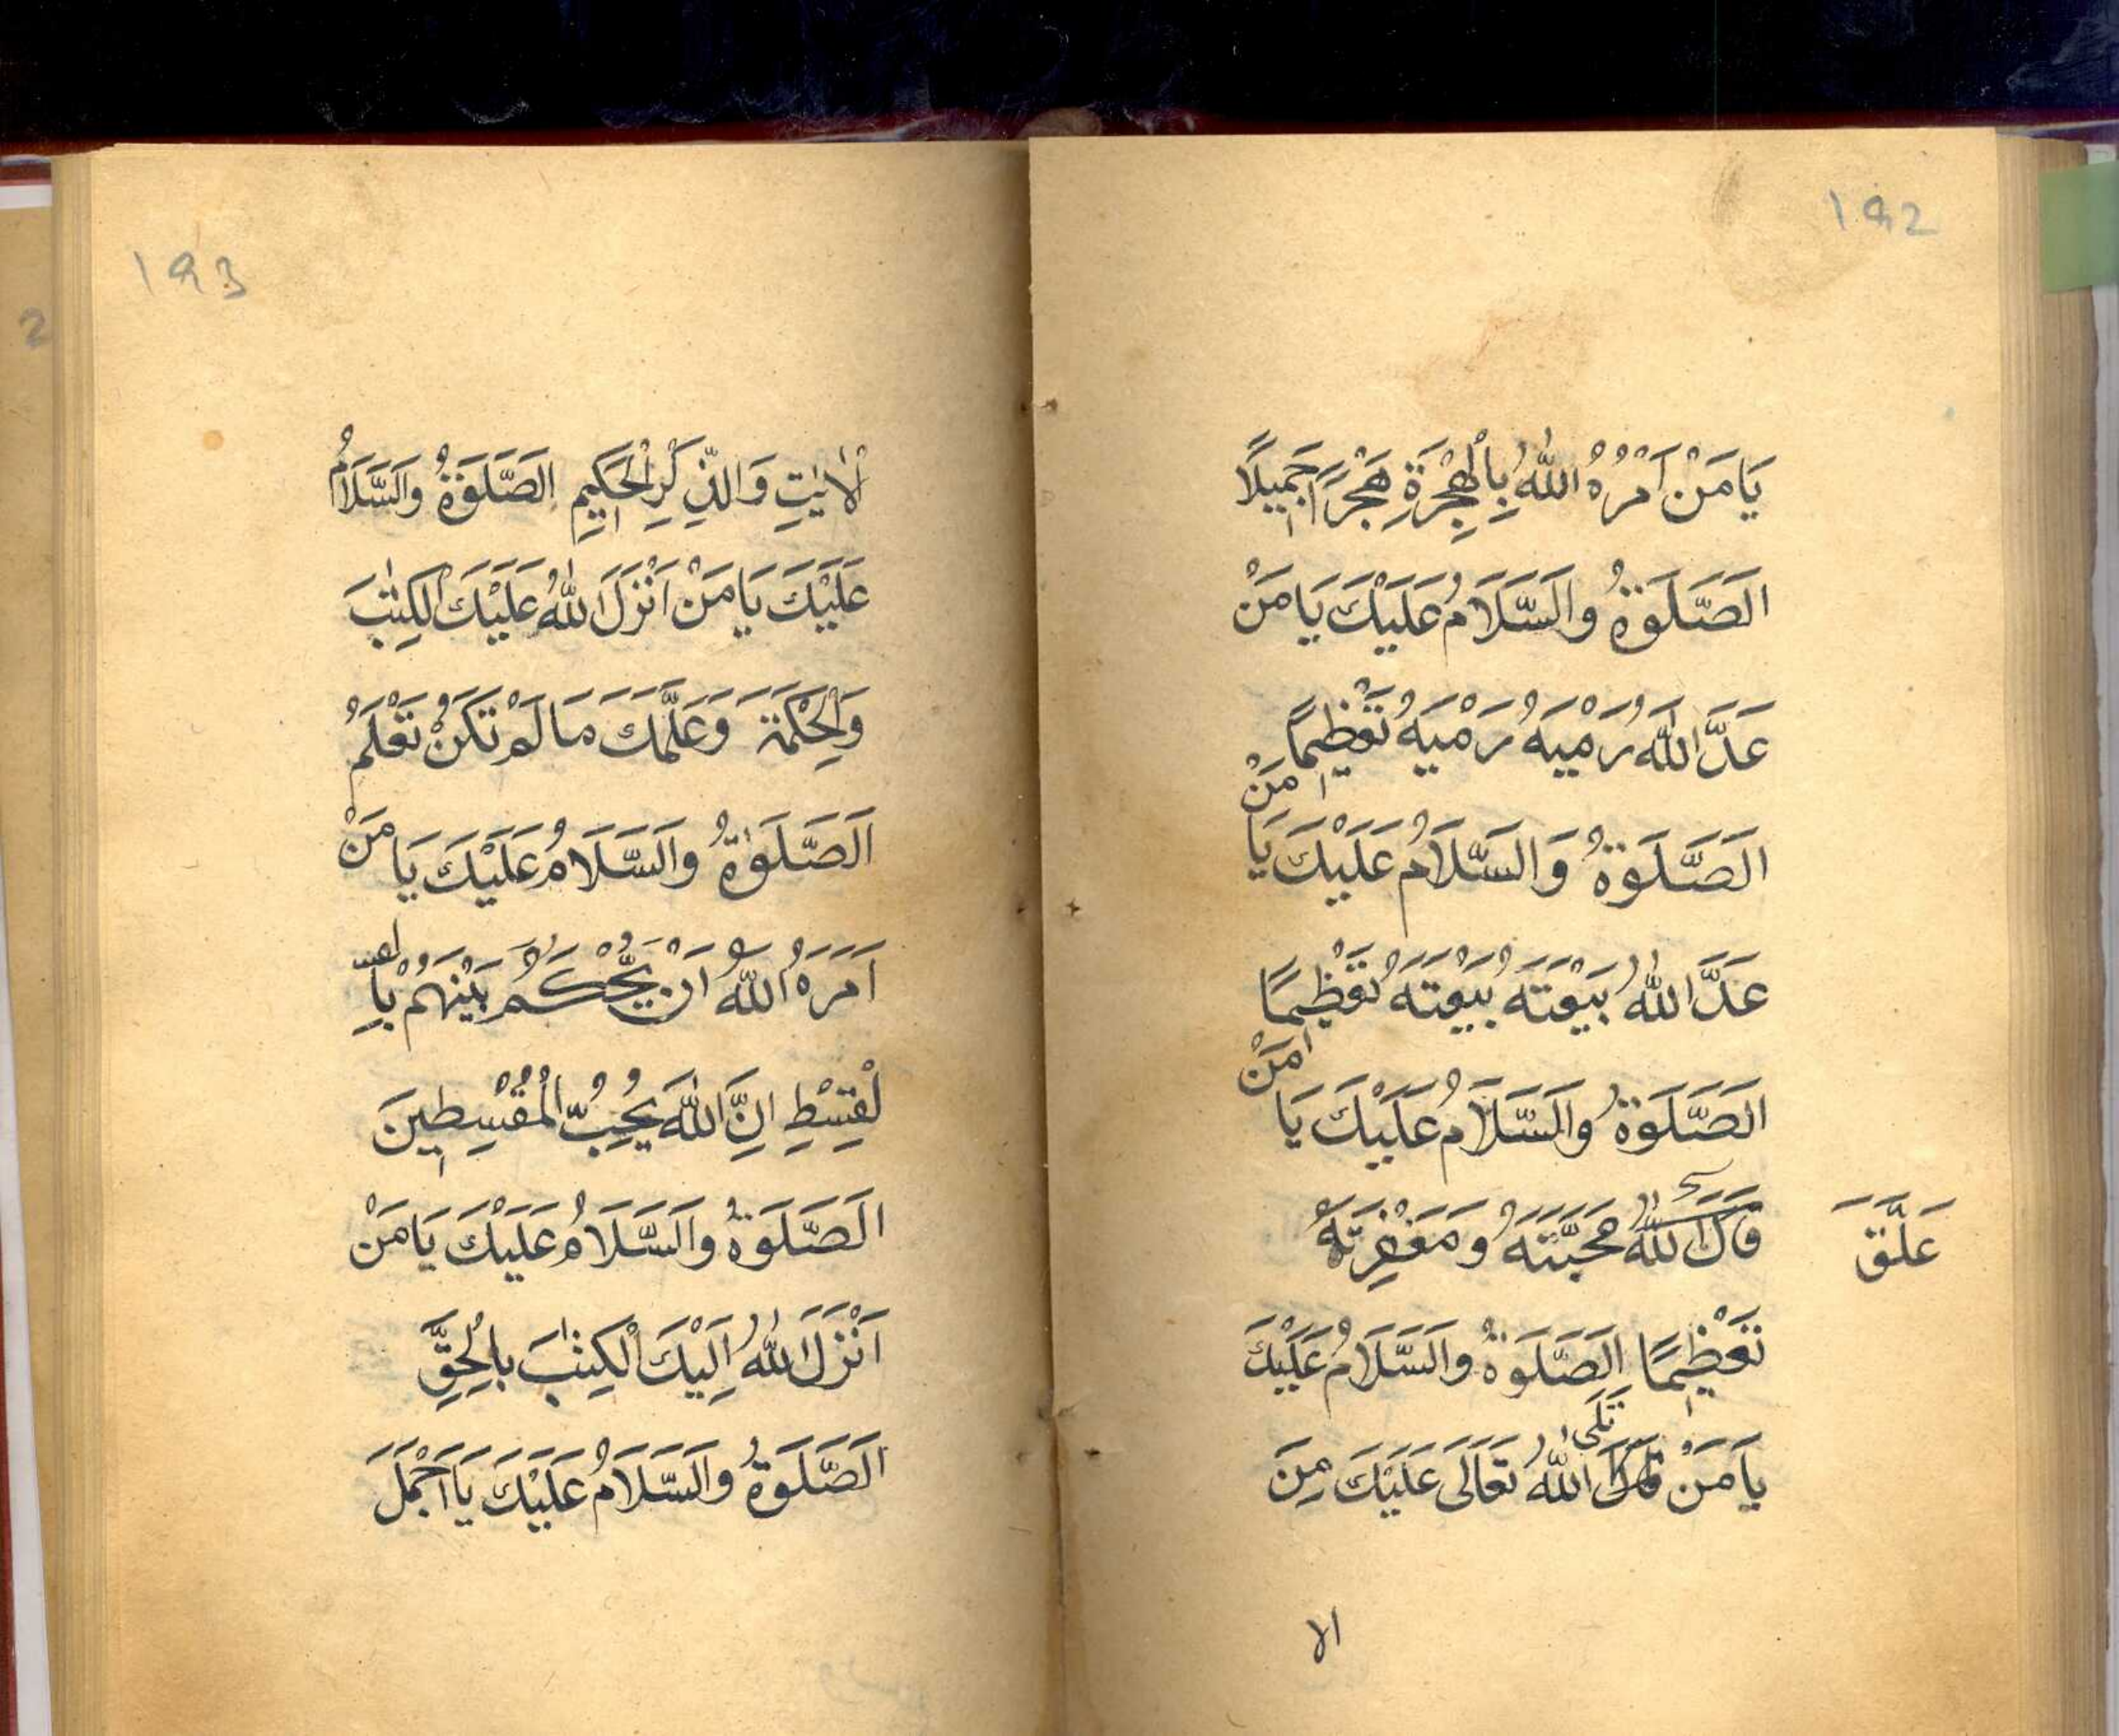 192
يَا مَنْ اَمْرُهُ اللّٰهُ بِالْهِجْرَةِ هَجْرًا جَمِيلًا
الَصَّلَوةُ والَسَّلَامُ عَلَيْكَ يَا مَنْ
عَدَّ اللّٰهُ رَمْيَهُ رَمْيَهُ تَعْظِيمًا
الَصَّلَوةُ وَالسَّلَامُ عَلَيْكَ يَا مَنْ
عَدَّ اللّٰهُ بَيْعَتَهُ بَيْعَتَهُ تَعْظِيمًا
الَصَّلَوةُ والَسَّلَامُ عَلَيْكَ يَا مَنْ
عَلَّقَ اللّٰهُ مَحَبَّتَهُ وَمَغْفِرَتَهُ
تَعْظِيمًا الَصَّلَوةُ والَسَّلَامُ عَلَيْكَ
يَا مَنْ تَلَى اللّٰهُ تَعَالَى عَلَيْكَ مِنَ
الا
193
الْاٰيٰتِ وَالذِّكْرِ الْحَكِيمِ الَصَّلَوةُ والَسَّلَامُ
عَلَيْكَ يَا مَنْ اَنْزَلَ اللّٰهُ عَلَيْكَ الْكِتٰبَ
وَالْحِكْمَةَ وَعَلَّمَكَ مَا لَمْ تَكُنْ تَعْلَمُ
الَصَّلَوٰةُ والَسَّلَامُ عَلَيْكَ يَا مَنْ
اَمَرَهُ اللّٰهُ اَنْ يَّحْكُمَ بَيْنَهُمْ بِا
لْقِسْطِ اِنَّ اللّٰهَ يُحِبُّ الْمُقْسِطِينَ
الَصَّلَوةُ والَسَّلَامُ عَلَيْكَ يَا مَنْ
اَنْزَلَ اللّٰهُ اِلَيْكَ الْكِتٰبَ بِالْحَقِّ
الَصَّلَوةُ والَسَّلَامُ عَلَيْكَ يَا اَجْمَلَ